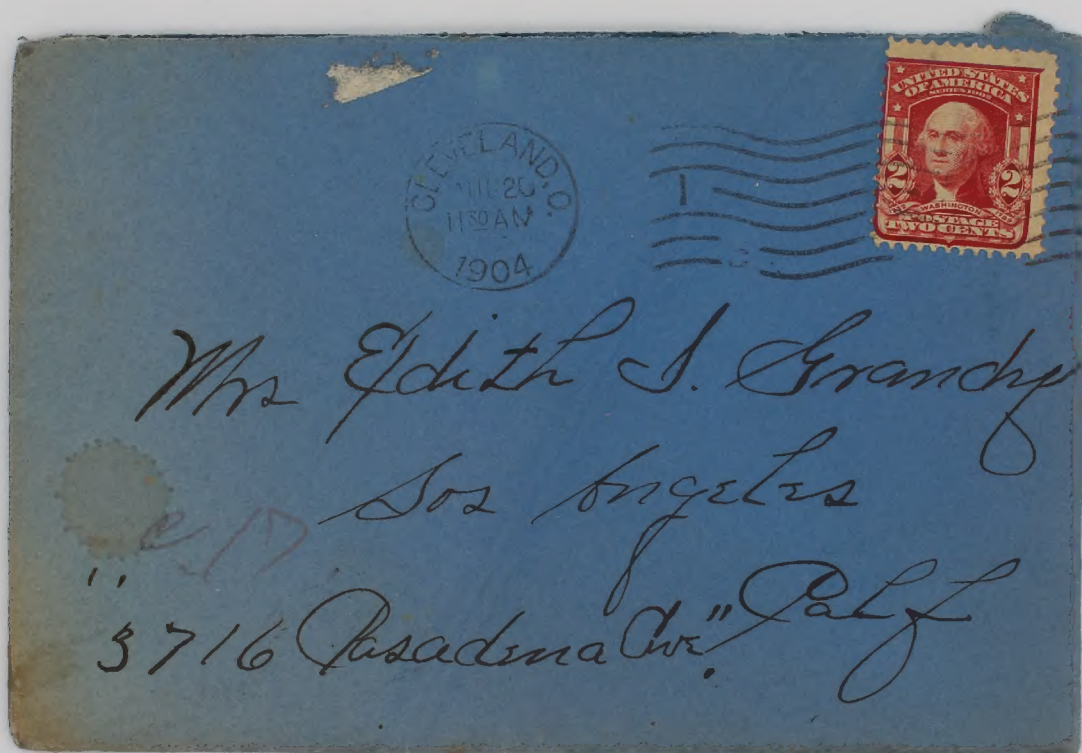 CLEVELAND, O.
20
11 30 AM
1904
1
UNITED STATES
OF AMERICA
SERIES 1902
2 2
WASHINGTON
POSTAGE
TWO CENTS
Mrs Edith S. Grandy
Los Angeles
Calf
"3716 Pasadena Ave".